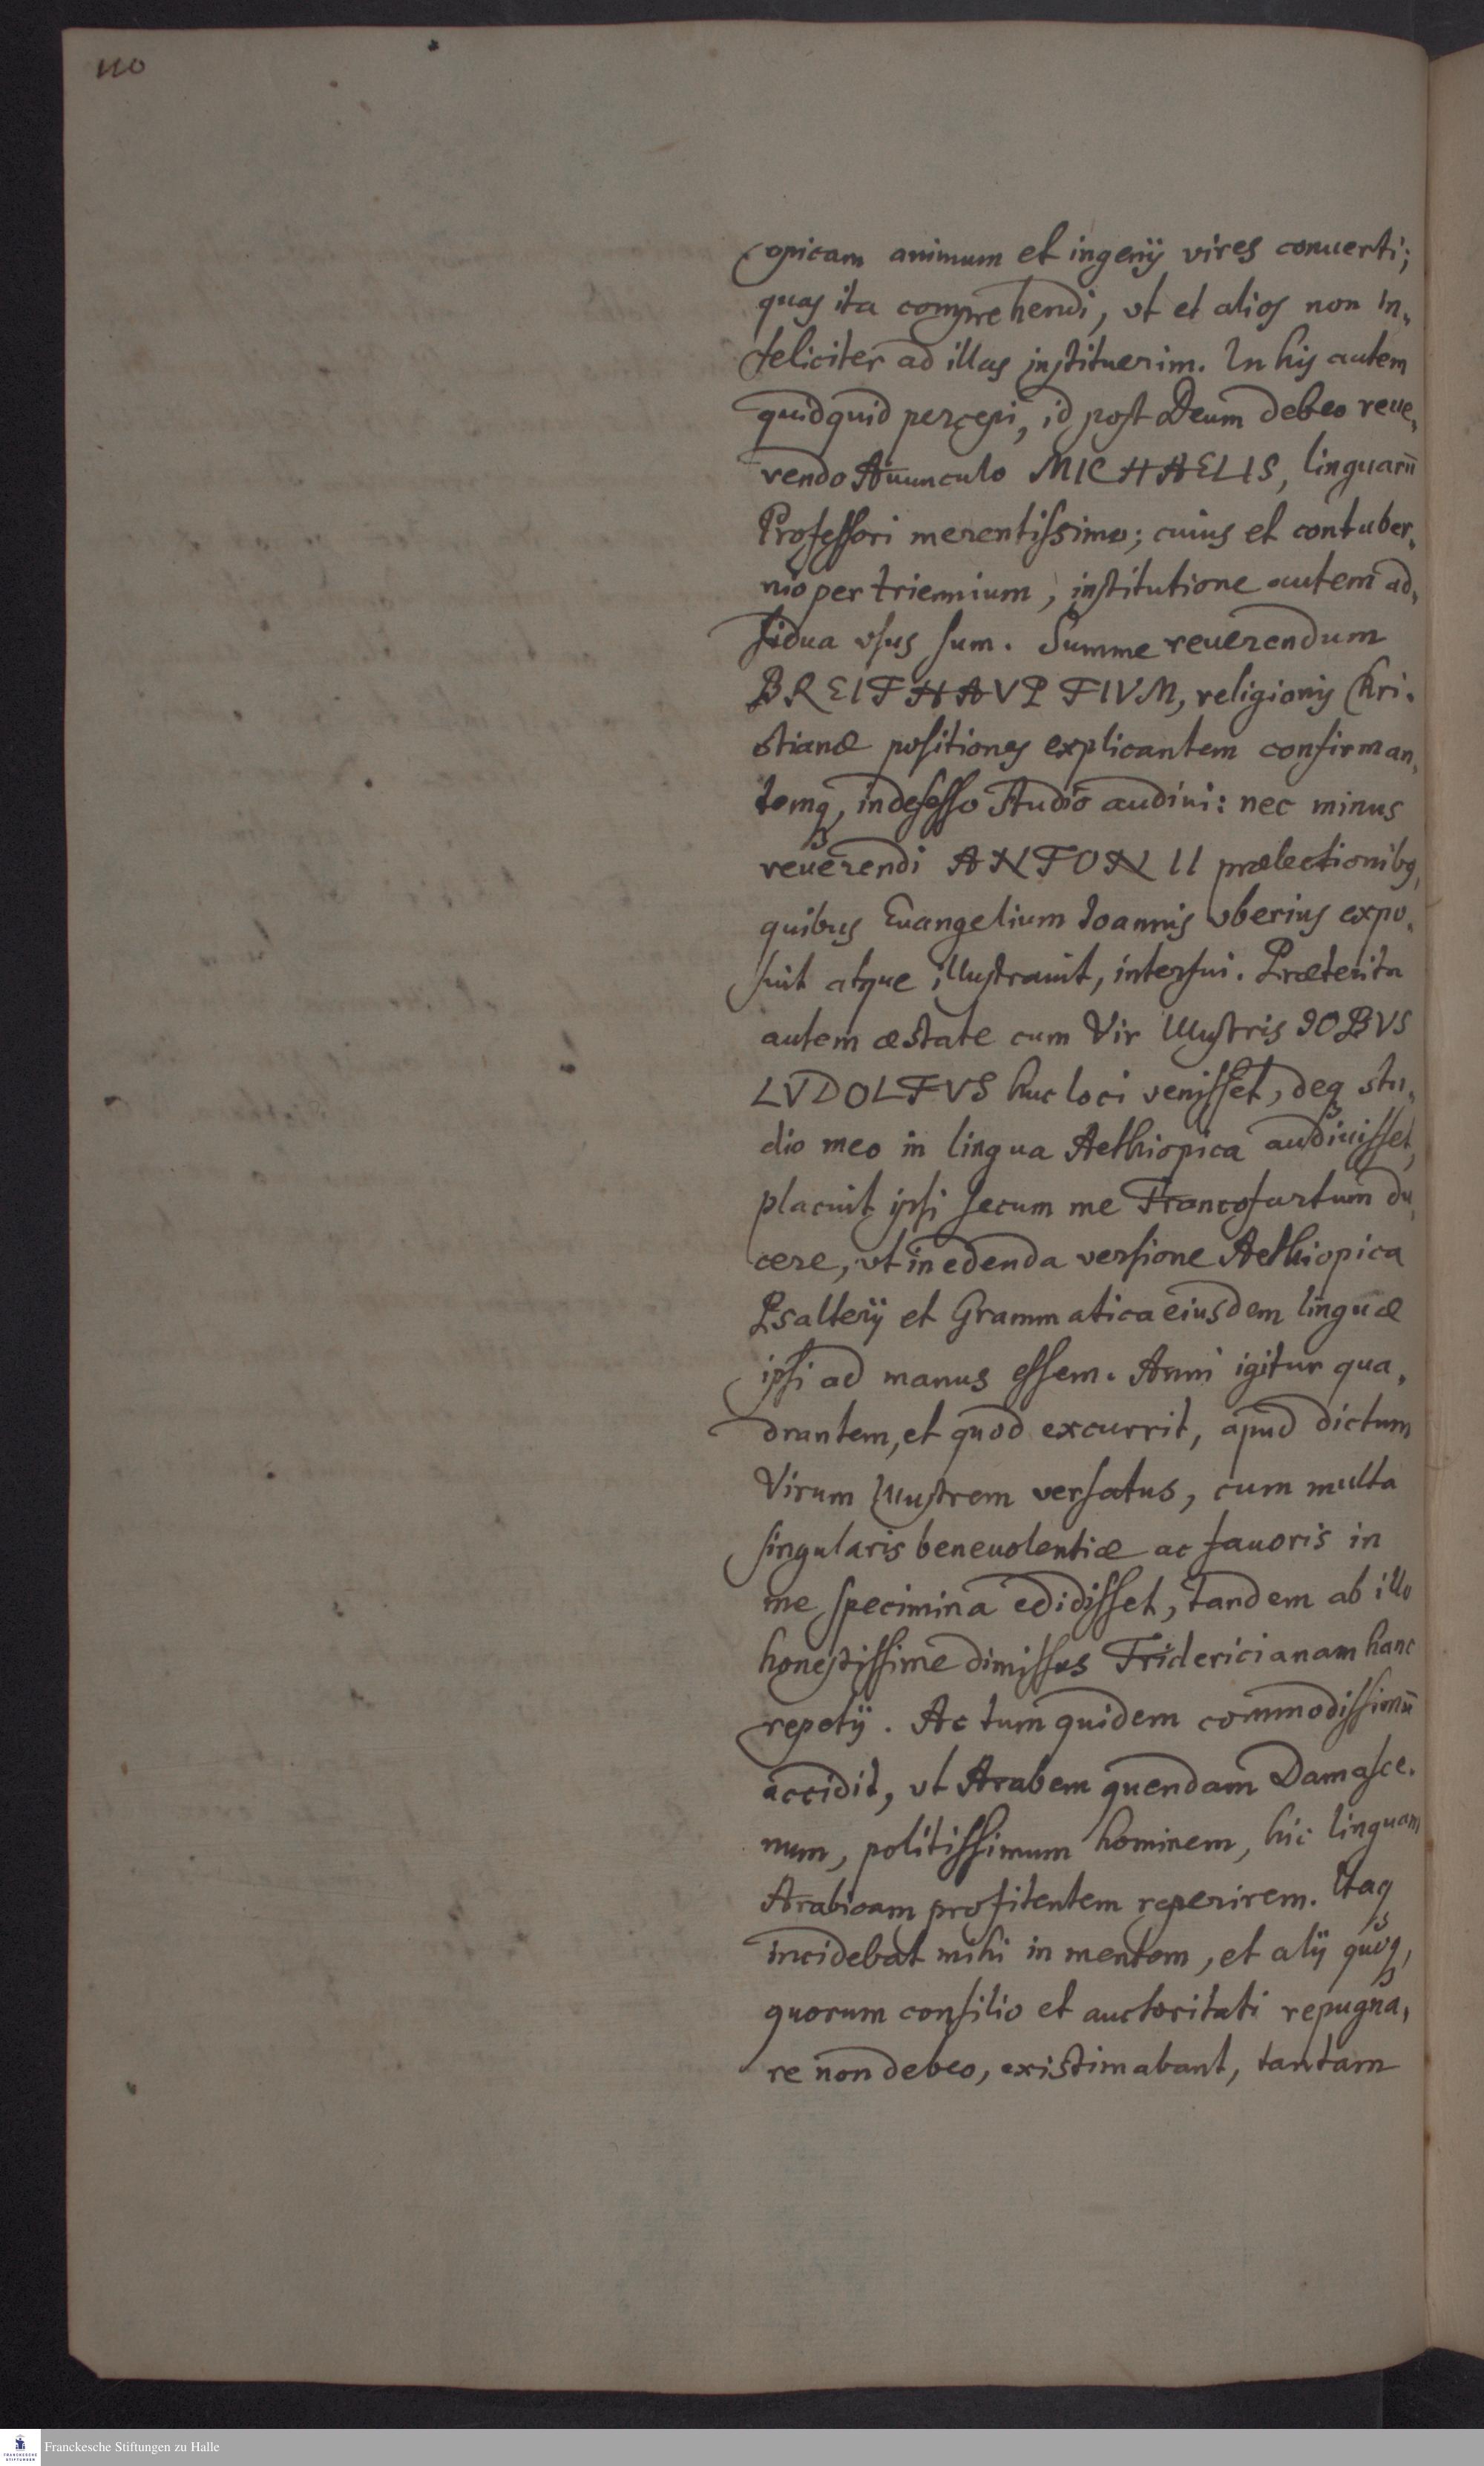 110
opicam animum et ingenij vires conuerti;
quas ita comprehendi, vt et alios non in-
feliciter ad illas instituerim. In his autem
quidquid percepi, id post Deum debeo reue-
rendo Auunculo MICHAELIS, linguarū
Professori merentissimo; cuius et contuber-
nio per triennium, institutione autem ad-
sidua vsus sum. Summe reuerendum
BREITHAVPTIVM, religionis Chri-
stianæ positiones explicantem confirman-
temq́, indefesso studio audiui: nec minus
reuerendi ANTONII prælectionibq,
quibus Euangelium Ioannis vberius expo-
suit atque illustrauit, interfui. Præterita
autem æstate cum Vir Illustris IOBVS
LVDOLFVS huc loci venisset, deq stu-
dio meo in lingua Aethiopica audiuisset,
placuit ipsi secum me Francofurtum du-
cere, vt in edenda versione Aethiopica
Psalterij et Grammatica eiusdem linguæ
ipsi ad manus essem. Anni igitur qua-
drantem, et quod excurrit, apud dictum
Virum Illustrem versatus, cum multa
singularis beneuolentiæ ac fauoris in
me specimina edidisset, tandem ab illo
honestissime dimissus Fridericianam hanc
repetij. Ac tum quidem commodissimū
accidit, vt Arabem quendam Damasce-
num, politissimum hominem, hic linguam
Arabicam profitentem reperirem. Itaq
incidebat mihi in mentem, et alij quoq,
quorum consilio et auctoritati repugna-
re non debeo, existimabant, tantam
Franckesche Stiftungen zu Halle
FRANCKESCHE
STIFTUNGEN